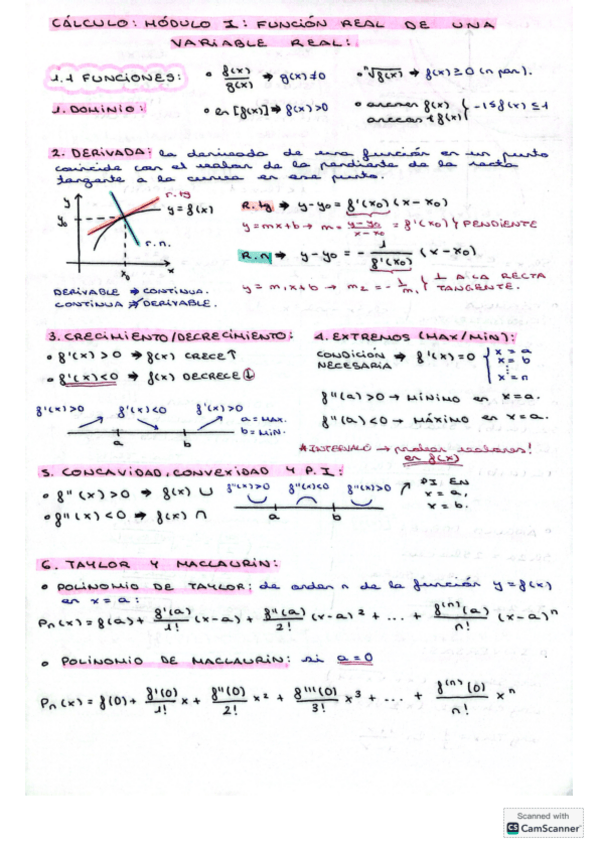 CÁLCULO: MÓDULO I: FUNCIÓN REAL DE UNA
VARIABLE REAL:
1.1 FUNCIONES:
• f(x)/g(x) → g(x)≠0
• ⁿ√f(x) → f(x) ≥ 0 (n par).
1. DOMINIO:
• en [f(x)] → f(x) > 0
• arcsen f(x) arccos f(x) { -1 ≤ f(x) ≤ 1
2. DERIVADA: la derivada de una función en un punto
coincide con el valor de la pendiente de la recta
tangente a la curva en ese punto.
y
r. tg
y₀
y = f(x)
r. n.
x₀
x
R. tg → y-y₀ = f'(x₀) (x-x₀)
y = mx+b → m = y-y₀/x-x₀ = f'(x₀) } PENDIENTE
R. n → y-y₀ = - 1/f'(x₀) (x-x₀)
y = m₁x+b → m₂ = - 1/m₁ } ⊥ A LA RECTA
TANGENTE.
DERIVABLE → CONTINUA.
CONTINUA ⇏ DERIVABLE.
3. CRECIMIENTO/DECRECIMIENTO:
• f'(x) > 0 → f(x) CRECE ↑
• f'(x) < 0 → f(x) DECRECE ↓
f'(x)>0 f'(x)<0 f'(x)>0
a = MAX.
b = MIN.
a b
4. EXTREMOS (MAX/MIN):
CONDICIÓN → f'(x) = 0 { x = a
NECESARIA x = b
⋮
x = n
f''(a) > 0 → MÍNIMO en x = a.
f''(a) < 0 → MÁXIMO en x = a.
* INTERVALO → probar valores!
en f(x)
5. CONCAVIDAD, CONVEXIDAD Y P.I:
• f''(x) > 0 → f(x) ∪
• f''(x) < 0 → f(x) ∩
f''(x)>0 f''(x)<0 f''(x)>0
a b
↗ PI EN
x = a,
x = b.
6. TAYLOR Y MACLAURIN:
• POLINOMIO DE TAYLOR: de orden n de la función y = f(x)
en x = a:
Pₙ(x) = f(a) + f'(a)/1! (x-a) + f''(a)/2! (x-a)² + ... + f⁽ⁿ⁾(a)/n! (x-a)ⁿ
• POLINOMIO DE MACLAURIN: si a = 0
Pₙ(x) = f(0) + f'(0)/1! x + f''(0)/2! x² + f'''(0)/3! x³ + ... + f⁽ⁿ⁾(0)/n! xⁿ
Scanned with
CS CamScanner